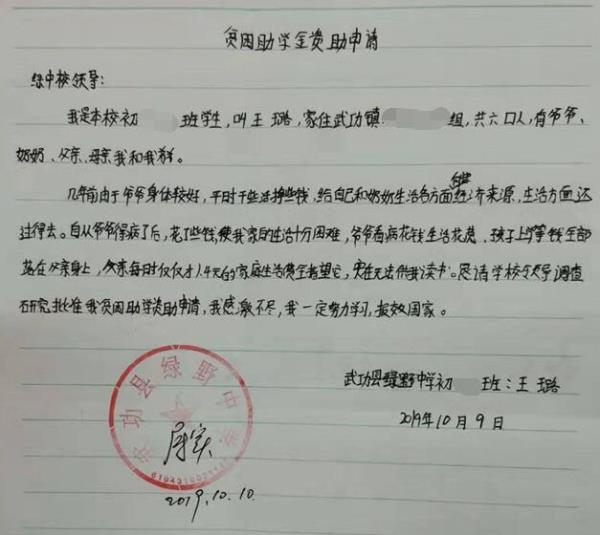 贫困助学金资助申请
绿中校领导:
我是本校初 班学生,叫王璐,家住武功镇 组,共六口人,有爷爷、
奶奶、父亲、母亲我和我
几年前由于爷爷身体较好,平时干些活挣些钱,给自己和奶奶生活各方面 经济来源,生活方面还
过得去。自从爷爷得病了后,花了些钱,使我家的生活十分困难,爷爷看病花钱生活花费、孩子上学等钱全部
落在父亲身上,父亲每时仅仅才 的家庭生活费全 它,实在无法供我读书。恳请学校领导调查
研究批准我贫困助学资助申请,我感激不尽,我一定努力学习,报效国家。
武功县绿野中学初 班:王璐
2019年10月9日
武功县绿野中学
属实
2019.10.10.